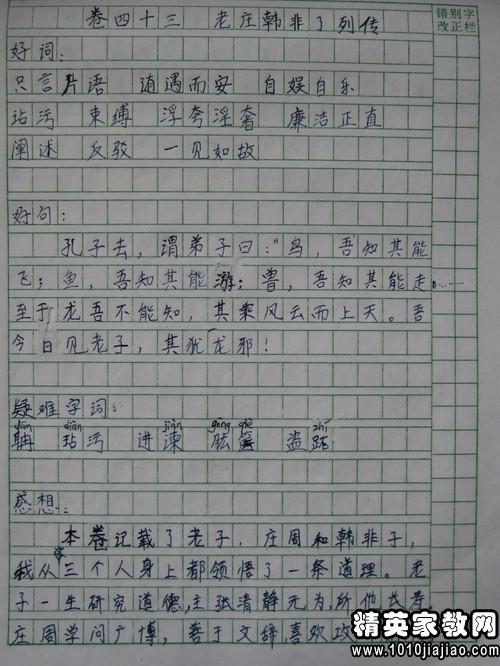 卷四十三 老庄韩非子列传
错别字
改正栏
好词:
只言片语 逍遇而安 自娱自乐
玷污 束缚 浮夸淫奢 廉洁正直
阐述 反驳 一见如故
好句:
孔子去,谓弟子曰:"鸟,吾知其能
飞;鱼,吾知其能游;兽,吾知其能走。……
至于龙吾不能知,其乘风云而上天。吾
今日见老子,其犹龙邪!
疑难字词:
diàn jiàn gōng qiè zhí
玷污 进谏 肱箧 盗跖
感想:
本卷记载了老子,庄周和韩非子,
我从这三个人身上都领悟了一条道理。老
子一生研究道德,主张清静无为,所他长寿
庄周学问广博,善于文辞喜欢攻
精英家教网
www.1010jiajiao.com